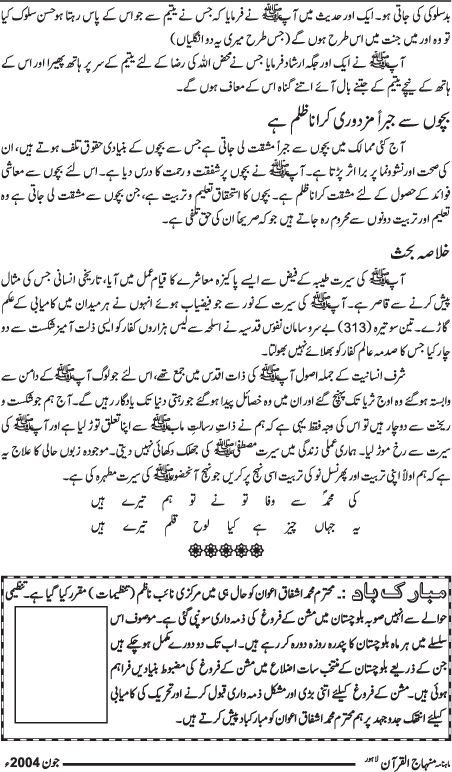 بدسلوکی کی جاتی ہو۔ ایک اور حدیث میں آپ ﷺ نے فرمایا کہ جس نے یتیم سے جو اس کے پاس رہتا ہو حسن سلوک کیا
تو وہ اور میں جنت میں اس طرح ہوں گے (جس طرح میری یہ دو انگلیاں)
آپ ﷺ نے ایک اور جگہ ارشاد فرمایا جس نے محض اللہ کی رضا کے لئے یتیم کے سر پر ہاتھ پھیرا اور اس کے
ہاتھ کے نیچے یتیم کے جتنے بال آئے اتنے گناہ اس کے معاف ہوں گے۔
بچوں سے جبراً مزدوری کرانا ظلم ہے
آج کئی ممالک میں بچوں سے جبراً مشقت لی جاتی ہے جس سے بچوں کے بنیادی حقوق تلف ہوتے ہیں، ان
کی صحت اور نشوونما پر برا اثر پڑتا ہے۔ آپ ﷺ نے بچوں پر شفقت و رحمت کا درس دیا ہے۔ اس لئے بچوں سے معاشی
فوائد کے حصول کے لئے مشقت کرانا ظلم ہے۔ بچوں کا استحقاق تعلیم و تربیت ہے، جن بچوں سے مشقت لی جاتی ہے وہ
تعلیم اور تربیت دونوں سے محروم رہ جاتے ہیں جو کہ صریحاً ان کی حق تلفی ہے۔
خلاصہ بحث
آپ ﷺ کی سیرت طیبہ کے فیض سے ایسے پاکیزہ معاشرے کا قیام عمل میں آیا، تاریخی انسانی جس کی مثال
پیش کرنے سے قاصر ہے۔ آپ ﷺ کی سیرت کے نور سے جو فیضیاب ہوئے انہوں نے ہر میدان میں کامیابی کے علم
گاڑے۔ تین سو تیرہ (313) بے سروسامان نفوس قدسیہ نے اسلحہ سے لیس ہزاروں کفار کو ایسی ذلت آمیز شکست سے دو
چار کیا جس کا صدمہ عالم کفار کو بھلائے نہیں بھولتا۔
شرف انسانیت کے جملہ اصول آپ ﷺ کی ذات اقدس میں جمع تھے، اس لئے جو لوگ آپ ﷺ کے دامن سے
وابستہ ہو گئے وہ اوج ثریا تک پہنچ گئے اور ان میں وہ خصائل پیدا ہو گئے جو رہتی دنیا تک یادگار رہیں گے۔ آج ہم جو شکست و
ریخت سے دوچار ہیں تو اس کی وجہ فقط یہی ہے کہ ہم نے ذات رسالت مآب ﷺ سے اپنا تعلق توڑ لیا ہے اور آپ ﷺ کی
سیرت سے رخ موڑ لیا۔ ہماری عملی زندگی میں سیرت مصطفی ﷺ کی جھلک دکھائی نہیں دیتی۔ موجودہ زبوں حالی کا علاج یہ
ہے کہ ہم اولاً اپنی تربیت اور پھر نسل نو کی تربیت اسی نہج پر کریں جو نہج آنحضور ﷺ کی سیرت مطہرہ کی ہے۔
کی محمدؐ سے وفا تو نے تو ہم تیرے ہیں
یہ جہاں چیز ہے کیا لوح قلم تیرے ہیں
مبارک باد :۔ محترم محمد اشفاق اعوان کو حال ہی میں مرکزی نائب ناظم (تنظیمات) مقرر کیا گیا ہے۔ تنظیمی
حوالے سے انہیں صوبہ بلوچستان میں مشن کے فروغ کی ذمہ داری سونپی گئی ہے۔ موصوف اس
سلسلے میں ہر ماہ بلوچستان کا پندرہ روزہ دورہ کر رہے ہیں۔ اب تک دو دورے مکمل ہو چکے ہیں
جن کے ذریعے بلوچستان کے منتخب سات اضلاع میں مشن کے فروغ کی مضبوط بنیادیں فراہم
ہوئی ہیں۔ مشن کے فروغ کیلئے اتنی بڑی اور مشکل ذمہ داری قبول کرنے اور تحریک کی کامیابی
کیلئے انتھک جدوجہد پر ہم محترم محمد اشفاق اعوان کو مبارکباد پیش کرتے ہیں۔
ماہنامہ منہاج القرآن لاہور جون 2004ء